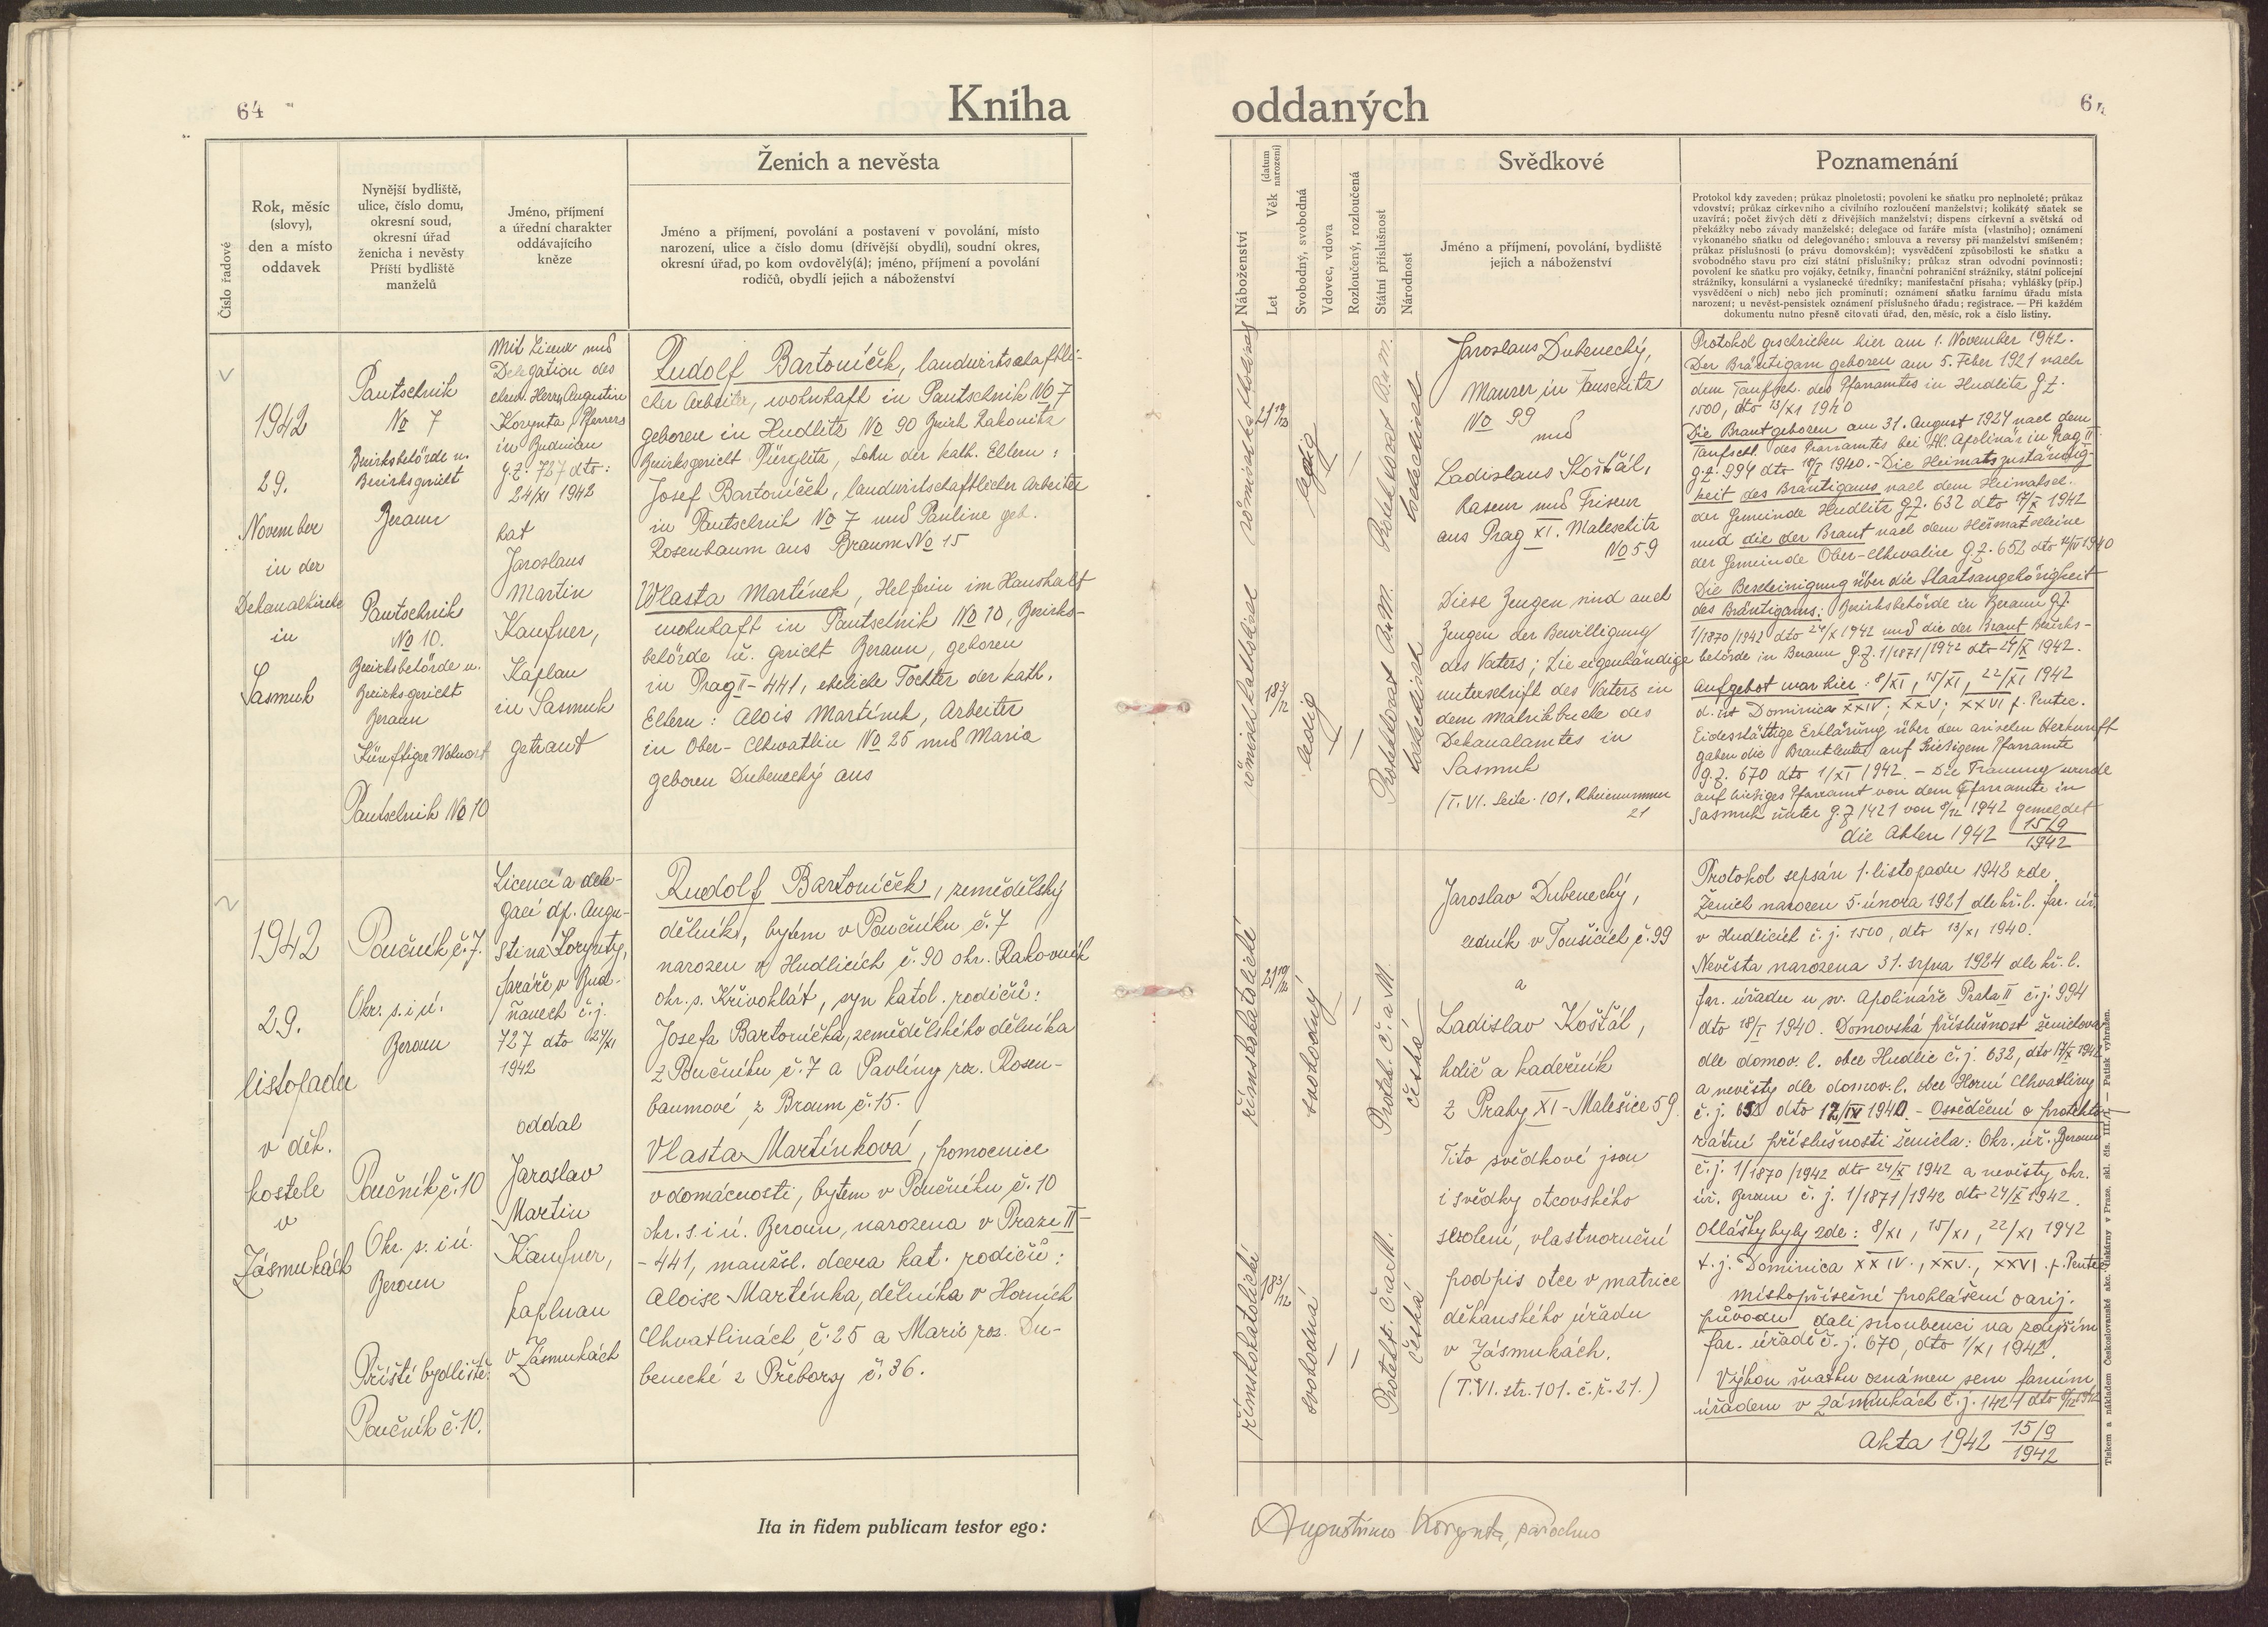 64
Kniha
Ženich a nevěsta
Číslo řadové
Rok, měsíc
(slovy),
den a místo
oddavek
Nynější bydliště,
ulice, číslo domu,
okresní soud,
okresní úřad
ženicha i nevěsty
Příští bydliště
manželů
Jméno, příjmení
a úřední charakter
oddávajícího
kněze
Jméno a příjmení, povolání a postavení v povolání, místo
narození, ulice a číslo domu (dřívější obydlí), soudní okres,
okresní úřad, po kom ovdověly(á); jméno, příjmení a povolání
rodičů, obydlí jejich a náboženství
1942
29.
November
in der
Dekanalkirche
in
Sasmuk
Pautschnik
No 7
Bezirksbehörde u.
Bezirksgericht
Beraun
Pautschnik
No 10.
Bezirksbehörde u.
Bezirksgericht
Beraun
Künftiger Wohnort
Pautschnik No 10
Mit Licenz und
Delegation des
ehrw. Herrn Augustin
Korynta, Pfarrers
in Budnian
g.z.: 727 dto:
24/XI 1942
hat
Jaroslaus
Martin
Kaufner,
Kaplan
in Sasmuk
getraut
Rudolf Bartoníček, landwirtschaftli-
cher Arbeiter, wohnhaft in Pautschnik No 7
geboren in Hudlitz No 90 Bezirk Rakonitz
Bezirksgericht Pürglitz, Sohn der kath. Eltern:
Josef Bartoníček, landwirtschaftlicher Arbeiter
in Pautschnik No 7 und Pauline geb.
Rosenbaum aus Braum No 15
Wlasta Martínek, Helferin im Haushalt
wohnhaft in Pautschnik No 10, Bezirks-
behörde u. gericht Beraun, geboren
in Prag II - 441, eheliche Tochter der kath.
Eltern: Alois Martínek, Arbeiter
in Ober-Chwatlin No 25 und Maria
geboren Dubenecký aus
1942
29.
listopadu
v děk.
kostele
v
Zásmukách
Poučník č. 7.
Okr. s. i ú.
Beroun
Poučník č. 10
Okr. s. i ú.
Beroun
Příští bydliště:
Poučník č. 10.
Licencí a dele-
gací dp. Augu-
stina Korynty,
faráře v Bud-
ňanech č. j.
727 dto 24/XI
1942
oddal
Jaroslav
Martin
Kaufner,
kaplan
v Zásmukách
Rudolf Bartoníček, zemědělský
dělník, bytem v Poučníku č. 7
narozen v Hudlicích č. 90 okr. Rakovník
okr. s. Křivoklát, syn katol. rodičů:
Josefa Bartoníčka, zemědělského dělníka
z Poučníku č. 7 a Pavlíny roz. Rosen-
baumové z Broum č. 15.
Vlasta Martínková, pomocnice
v domácnosti, bytem v Poučníku č. 10
okr. s. i ú. Beroun, narozena v Praze II -
- 441, manžel. dcera kat. rodičů:
Aloise Martínka, dělníka v Horních
Chvatlinách č. 25 a Marie roz. Du-
benecké z Přebozy č. 36.
Ita in fidem publicam testor ego:
oddaných
Svědkové
Poznamenání
Náboženství
Let
Věk
(datum narození)
Svobodný, svobodná
Vdovec, vdova
Rozloučený, rozloučená
Státní příslušnost
Národnost
Jméno a příjmení, povolání, bydliště
jejich a náboženství
Protokol kdy zaveden; průkaz plnoletosti; povolení ke sňatku pro neplnoleté; průkaz
vdovství; průkaz církevního a civilního rozloučení manželství; kolikátý sňatek se
uzavírá; počet živých dětí z dřívějších manželství; dispens církevní a světská od
překážky nebo závady manželské; delegace od faráře místa (vlastního); oznámení
vykonaného sňatku od delegovaného; smlouva a reversy při manželství smíšeném;
průkaz příslušnosti (o právu domovském); vysvědčení způsobilosti ke sňatku a
svobodného stavu pro cizí státní příslušníky; průkaz stran odvodní povinnosti;
povolení ke sňatku pro vojáky, četníky, finanční pohraniční strážníky, státní policejní
strážníky, konsulární a vyslanecké úředníky; manifestační přísaha; vyhlášky (příp.)
vysvědčení o nich) nebo jich prominutí; oznámení sňatku farnímu úřadu místa
narození; u nevěst-pensistek oznámení příslušného úřadu; registrace. — Při každém
dokumentu nutno přesně citovati úřad, den, měsíc, rok a číslo listiny.
ledig
Protektorat B.u.M.
tschechisch
römischkatholisch
ledig
Protektorat B.u.M.
tschechisch
Jaroslaus Dubenecký,
Maurer in Tauschitz
No 99
und
Ladislaus Košťál,
Raseur und Friseur
aus Prag XI. Maleschitz
No 59
Diese Zeugen sind auch
Zeugen der Bewilligung
des Vaters; die eigenhändige
unterschrift des Vaters in
dem Matrikbuche des
Dekanalamtes in
Sasmuk
(T. VI. Seite 101. Reihenummer
21
Protokol geschrieben hier am 1. November 1942.
Der Bräutigam geboren am 5. Feber 1921 nach
dem Taufsch. des Pfarramtes in Hudlitz g.z.
1500, dto 13/XI 1940
Die Braut geboren am 31. August 1924 nach dem
Taufsch. des Pfarramtes bei Hl. Apolinär in Prag II
g.z. 994 dto 18/I 1940. - Die Heimatszuständig-
keit des Bräutigams nach dem Heimatsch.
der Gemeinde Hudlitz g.z. 632 dto 17/X 1942
und die der Braut nach dem Heimatscheine
der Gemeinde Ober-Chwalin g.z. 652 dto 12/IV 1940
Die Bescheinigung über die Staatsangehörigkeit
des Bräutigams: Bezirksbehörde in Beraun g.z.
1/1870/1942 dto 24/X 1942 und die der Braut Bezirks-
behörde in Beraun g.z. 1/1871/1942 dto 24/X 1942.
Aufgebot war hier: 8/XI, 15/XI, 22/XI 1942
d. ist Dominica XXIV; XXV; XXVI p. Pentec.
Eidesstättige Erklärung über den arischen Herkunft
gaben die Brautleute auf hiesigem Pfarramte
g.z. 670 dto 1/XI 1942. - Die Trauung wurde
auf hiesiges Pfarramt von dem Pfarramte in
Sasmuk unter g.z. 1421 von 9/12 1942 gemeldet
die Akten 1942 15/9
1942
římskokatolické
svobodný
Protekt. Č. a M.
česká
římskokatolické
svobodná
Protekt. Č. a M.
česká
Jaroslav Dubenecký,
zedník v Toušicích č. 99
a
Ladislav Košťál,
holič a kadeřník
z Prahy XI - Malešice 59.
Tito svědkové jsou
i svědky otcovského
svolení, vlastnoruční
podpis otce v matrice
děkanského úřadu
v Zásmukách.
(T. VI. str. 101. č. ř. 21.)
Protokol sepsán 1. listopadu 1942 zde.
Ženich narozen 5. února 1921 dle kř. l. far. úř.
v Hudlicích č. j. 1500, dto 13/XI 1940.
Nevěsta narozena 31. srpna 1924 dle kř. l.
far. úřadu u sv. Apolináře Praha II č. j. 994
dto 18/I 1940. Domovská příslušnost ženichova
dle domov. l. obce Hudlic č. j. 632, dto 17/X 1942
a nevěsty dle domov. l. obce Horní Chvatliny
č. j. 652 dto 12/IV 1940. - Osvědčení o protekto-
rátní příslušnosti ženicha: Okr. úř. Beroun
č. j. 1/1870/1942 dto 24/X 1942 a nevěsty okr.
úř. Beroun č. j. 1/1871/1942 dto 24/X 1942.
Ohlášky byly zde: 8/XI, 15/XI, 22/XI 1942
t. j. Dominica XXIV., XXV., XXVI. p. Pentec
Místopřísežné prohlášení o arij.
původu dali snoubenci na zdejším
far. úřadě č. j. 670, dto 1/XI 1942.
Výkon sňatku oznámen sem farním
úřadem v Zásmukách č. j. 1421 dto 9/12 1942
Akta 1942 15/9
1942
Tiskem a nákladem Československé akc. tiskárny v Praze, skl. čís. III/1. — Patisk vyhražen.
Augustinus Korynta, parochus